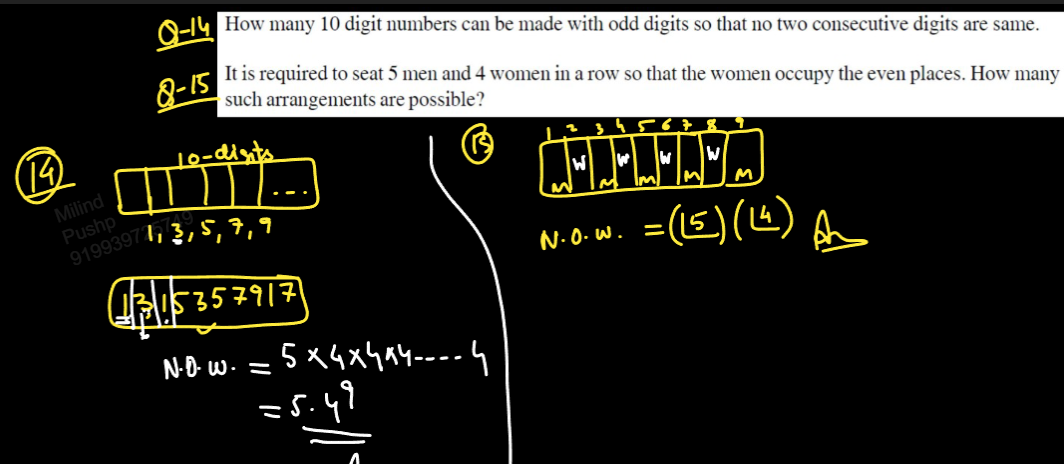 Q-14 How many 10 digit numbers can be made with odd digits so that no two consecutive digits are same.
Q-15 It is required to seat 5 men and 4 women in a row so that the women occupy the even places. How many
such arrangements are possible?
14
10-digits
...
1, 3, 5, 7, 9
Milind
Pushp
1 3 1 5 3 5 7 9 1 7
N.O.W. = 5 × 4 × 4 × 4 ---- 4
= 5.4⁹
15
1 2 3 4 5 6 7 8 9
M W M W M W M W M
N.O.W. = (⌊5)(⌊4) An